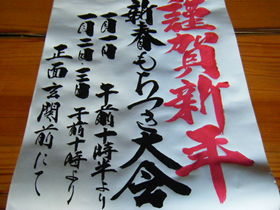 謹賀新年
新春もちつき大会
一月一日 午前十時半より
一月二日三日 午前十時より
正面玄関前にて